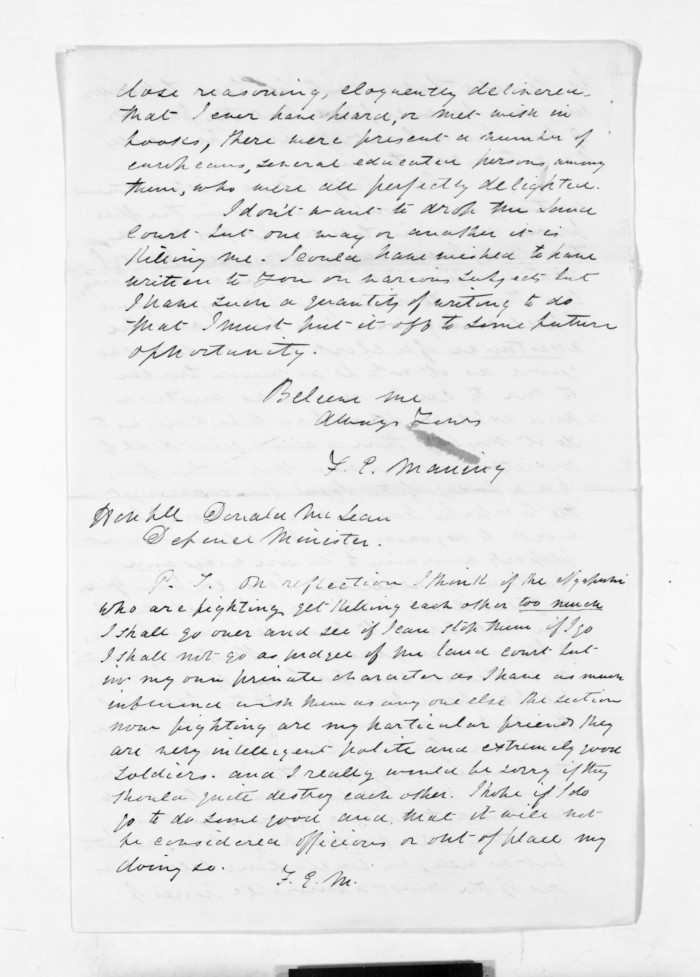 close reasoning, eloquently delivered,
that I ever have heard, or met with in
books, there were present a number of
europeans, several educated persons, among
them, who were all perfectly delighted.
I don't want to drop the Land
Court but one way or another it is
Killing me. I could have wished to have
written to you on various subjects but
I have such a quantity of writing to do
that I must put it off to some future
opportunity.
Believe me
Always Yours
F. E. Maning
Honble Donald McLean
Defence Minister.
P. S. On reflection I think if the Ngapuhi
who are fighting get Killing each other too much
I shall go over and see if I can stop them if I go
I shall not go as judge of the land court but
in my own private character as I have as much
influence with them as any one else the section
now fighting are my particular friends they
are very intelligent polite and extremely good
soldiers. and I really would be sorry if they
should quite destroy each other. I hope if I do
go to do some good and that it will not
be considered officious or out of place my
doing so.
F. E. M.